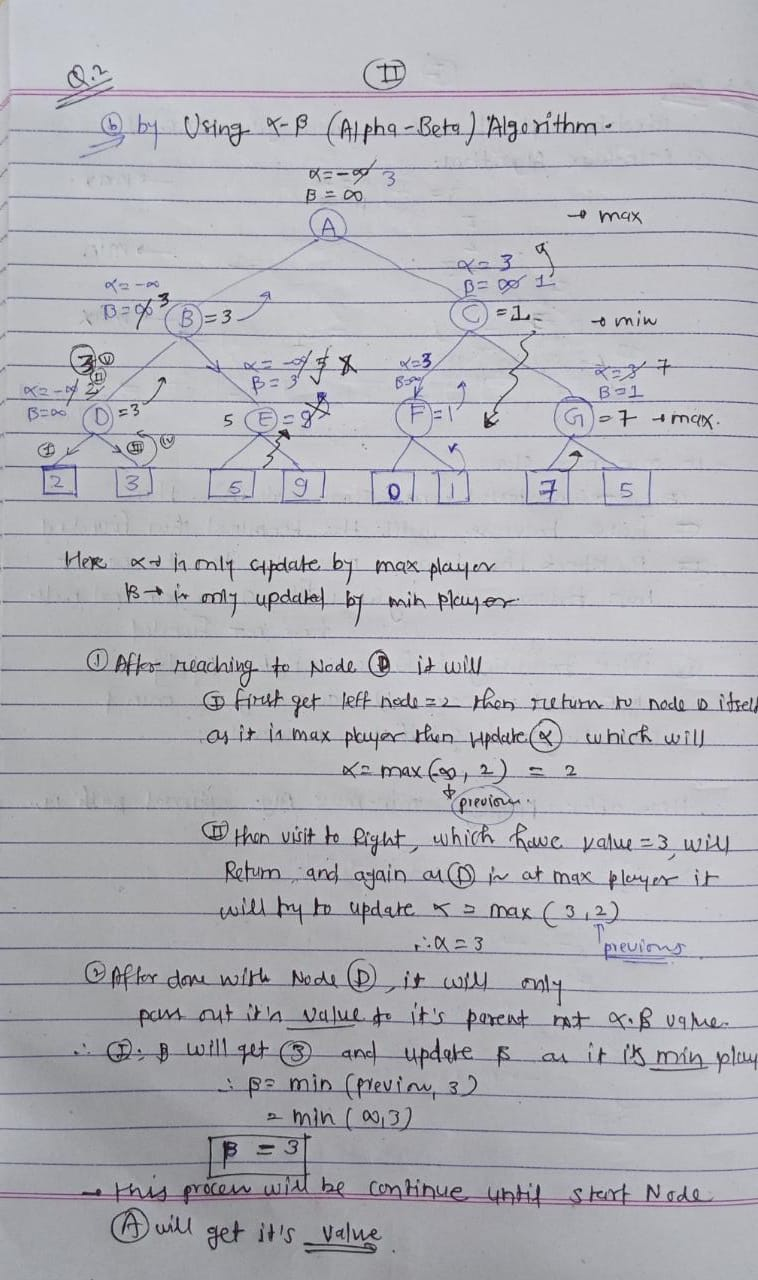 Q.2
II
b by Using α-β (Alpha-Beta) Algorithm.
α=-∞ 3
β=∞
A
→ max
α=3
β=∞ 1
α=-∞
β=∞ 3
B =3
C =1
→ min
3 V
II
α=-∞ 2
β=∞
D =3
α=-∞ 5
β=3
5 E =9
α=3
β=∞
F =1
α=3 7
β=1
G =7 → max.
I
III
IV
2 3 5 9 0 1 7 5
Here α → is only update by max player
β → is only updated by min player
① After reaching to Node D it will
I first get left node = 2 then return to node D itself
as it is max player then update α which will
α= max (-∞, 2) = 2
previous.
II then visit to Right, which have value = 3, will
Return and again as D is at max player it
will try to update α = max (3,2)
∴ α = 3
previous
② After done with Node D, it will only
pass out it's value to it's parent not α.β value.
∴ I: B will get 3 and update β as it is min play
∴ β= min (previou, 3)
= min (∞,3)
β = 3
→ this process will be continue until start Node
A will get it's value.